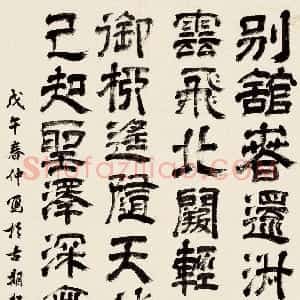 別館春還淑
雲飛北闕輕
御柳遙隨天
已知聖澤深無
戊午春仲寫於古
Shufaziliao.com